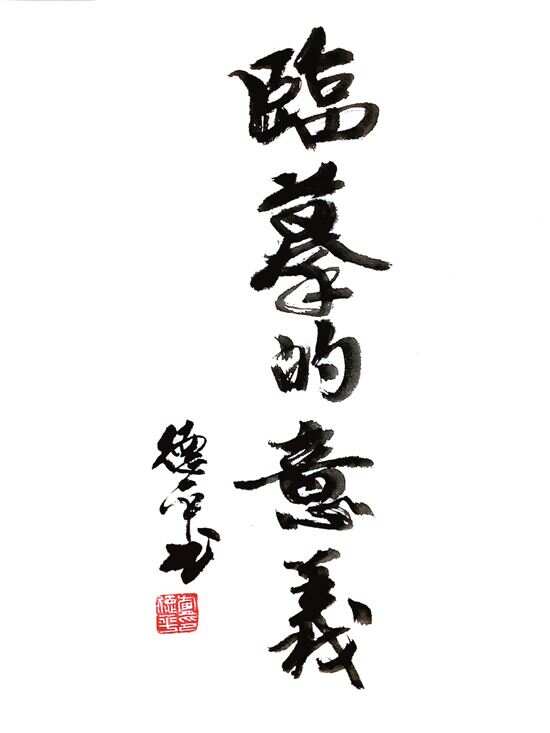 臨摹的意義
德平书